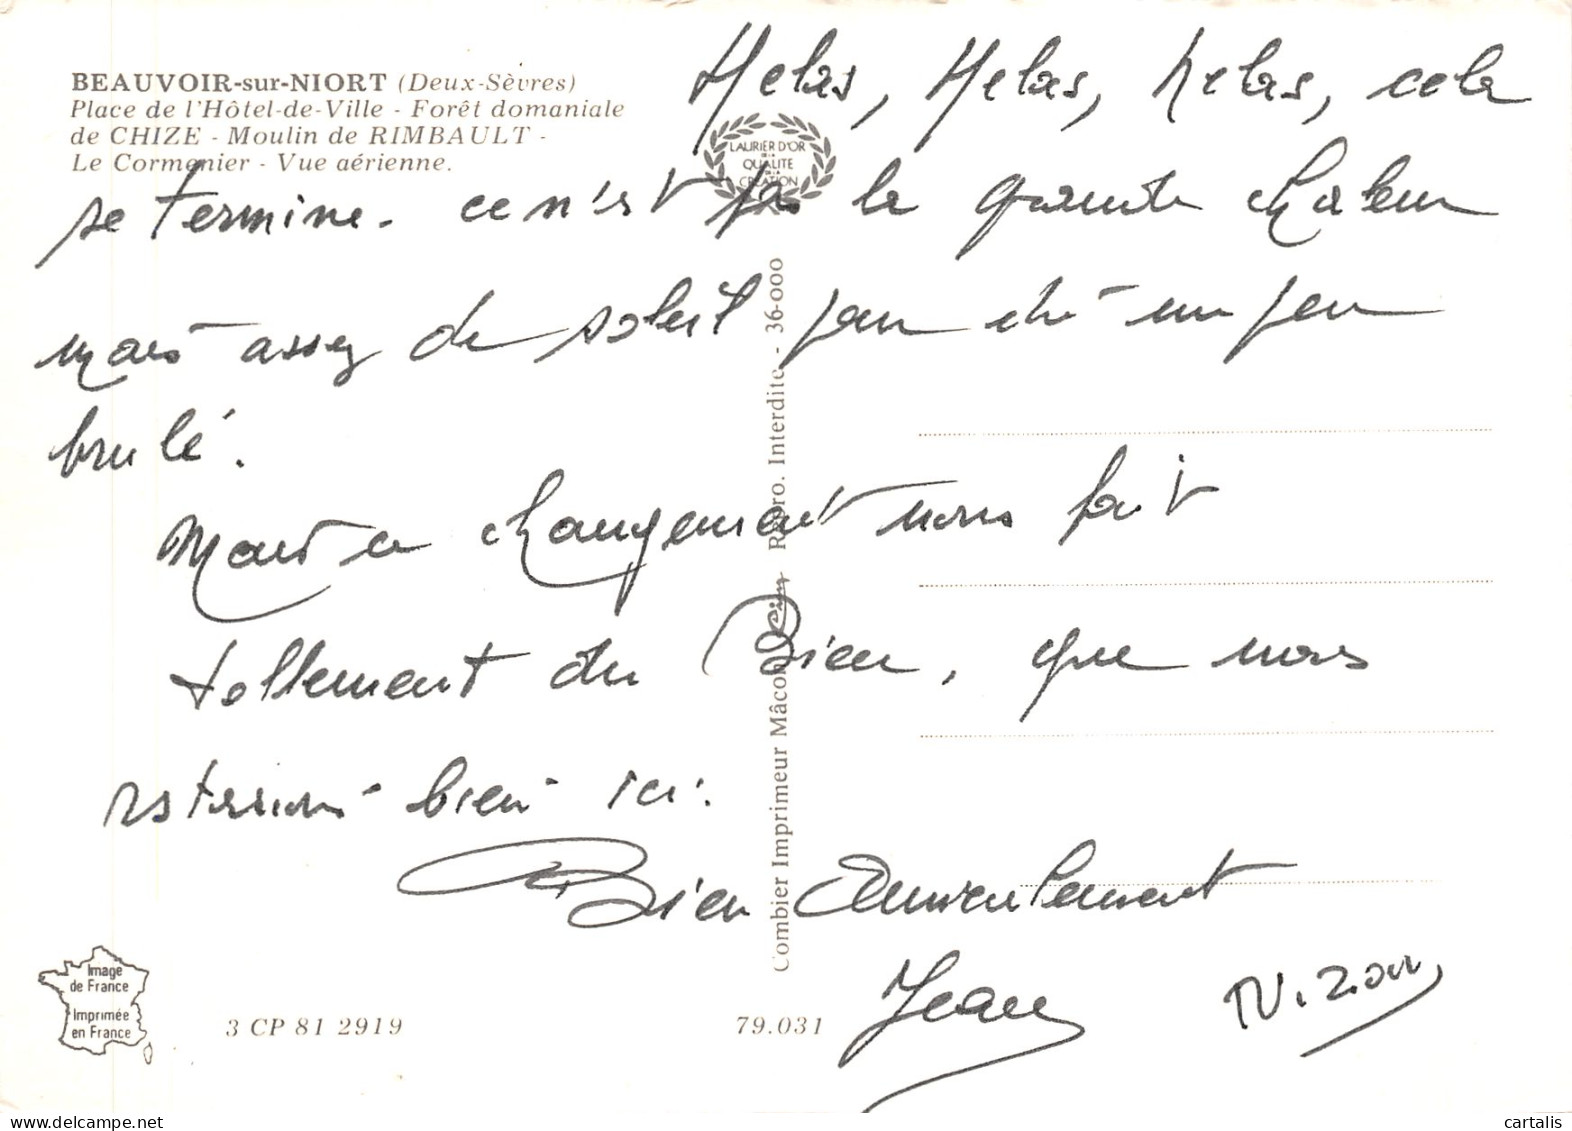 BEAUVOIR-sur-NIORT (Deux-Sèvres)
Place de l'Hôtel-de-Ville - Forêt domaniale
de CHIZE - Moulin de RIMBAULT -
Le Cormenier - Vue aérienne.
LAURIER D'OR
DE LA
QUALITE
DE LA
CREATION
Helas, Helas, helas, cela
se termine. ce n'est pas la grande chaleur
mais assez de soleil pour été un peu
brulé.
Mais ce changement nous fait
tellement du Bien, que nous
resterions bien ici.
Bien Amicalement
Jean
Combier Imprimeur Mâcon Cim Repro. Interdite - 36-000
Image
de France
Imprimée
en France
3 CP 81 2919
79.031
cartalis